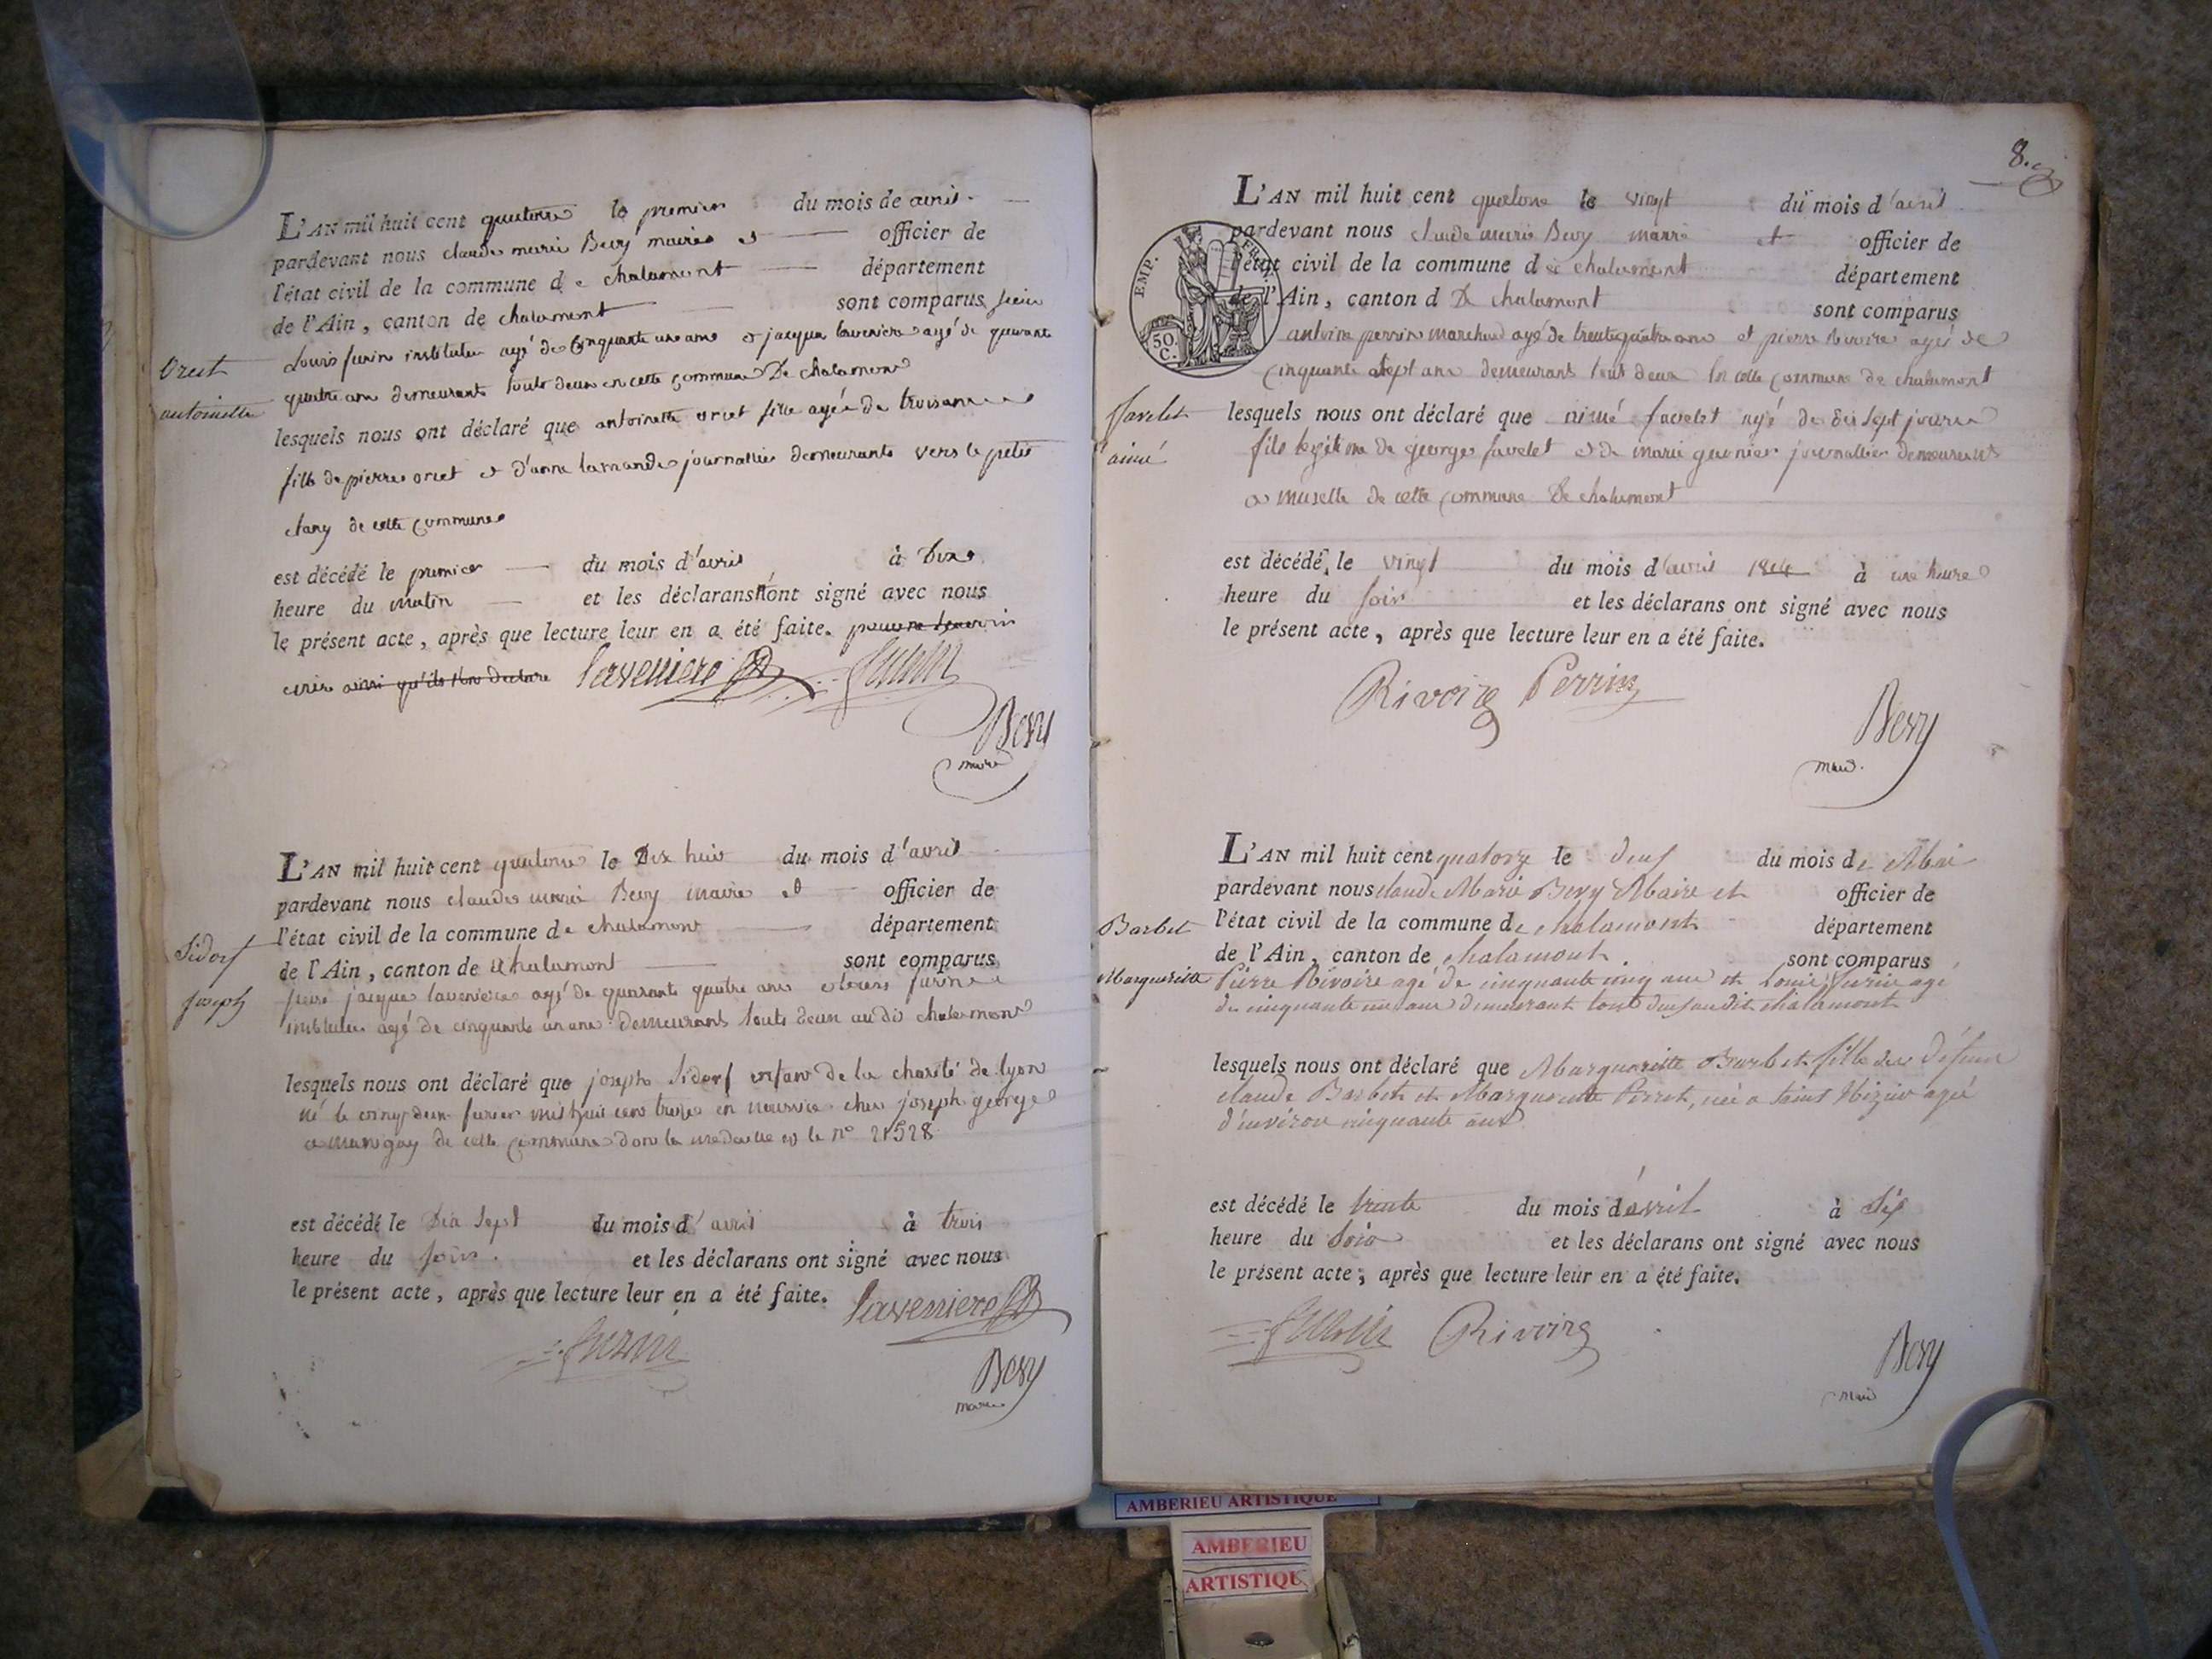 Orset
antoinette
L'AN mil huit cent quatorze le premier du mois de avril
pardevant nous claude marie Bevy maire et officier de
l'état civil de la commune de chalamont département
de l'Ain, canton de chalamont sont comparus
Louis furin instituteur agé de cinquante un ans et jacques laveniere agé de quarante
quatre ans demeurant touts deux en cette commune De chalamont
lesquels nous ont déclaré que antoinette orset fille agée de trois ans
fille de pierre orset et d'anne lamande journallier demeurants vers le petit
etang de cette commune
est décédé le premier du mois d'avril à Dix
heure du matin et les déclarans n'ont signé avec nous
le présent acte, après que lecture leur en a été faite. pour ne savoir
ecrire ainsi qu'ils l'on declaré laveniere furin
Bevy
maire
Sidorf
joseph
L'AN mil huit cent quatorze le Dix huit du mois d'avril
pardevant nous claude marie Bevy maire et officier de
l'état civil de la commune de chalamont département
de l'Ain, canton de chalamont sont comparus
jacques laveniere agé de quarante quatre ans et louis furin
instituteur agé de cinquante un ans demeurants touts deux audit chalamont
lesquels nous ont déclaré que joseph Sidorf enfant de la charité de lyon
né le vingt deux mil huit cent treize en nourrice chez joseph george
a de cette commune dont la medaille est le n° 21528
est décédé le Dix Sept du mois d'avril à trois
heure du soir. et les déclarans ont signé avec nous
le présent acte, après que lecture leur en a été faite. laveniere
furin
Bevy
maire
8.
L'AN mil huit cent quatorze le vingt du mois d'avril
pardevant nous claude marie Bevy maire et officier de
l'état civil de la commune de chalamont département
de l'Ain, canton d De chalamont sont comparus
EMP. FR.
50 C.
antoine perrin marchand agé de trente quatre ans et pierre Rivoire agé de
cinquante sept ans demeurant tout deux en cette commune de chalamont
favelet
aimé
lesquels nous ont déclaré que aimé favelet agé de dix sept jours
fils legitime de george favelet et de marie guenier journallier demeurants
a musette de cette commune De chalamont
est décédé le vingt du mois d'avril 1814 à une heure
heure du soir et les déclarans ont signé avec nous
le présent acte, après que lecture leur en a été faite.
Rivoire Perrin
Bevy
maire.
Barbet
Margueritte
L'AN mil huit cent quatorze le deux du mois de Mai
pardevant nous claude Marie Bevy Maire et officier de
l'état civil de la commune de chalamont département
de l'Ain, canton de chalamont. sont comparus
Pierre Rivoire agé de cinquante cinq ans et Louis furin agé
de cinquante un ans demeurant tout deux audit chalamont
lesquels nous ont déclaré que Margueritte Barbet fille de défunt
claude Barbet et Marguerite Perret, née a Saint Nizier agée
d'environ cinquante ans
est décédé le trente du mois d'avril à Six
heure du Soir et les déclarans ont signé avec nous
le présent acte, après que lecture leur en a été faite.
furin Rivoire
Bevy
maire
AMBERIEU ARTISTIQUE
AMBERIEU
ARTISTIQU